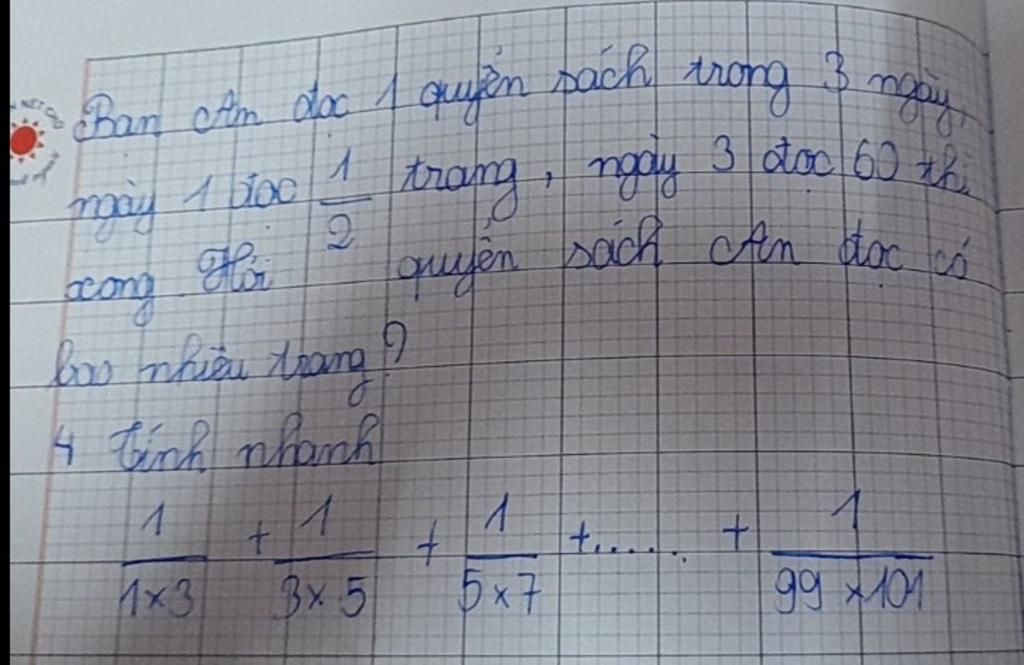 Bạn An đọc 1 quyển sách trong 3 ngày,
ngày 1 đọc 1/2 trang, ngày 3 đọc 60 thì
xong Hỏi quyển sách An đọc có
bao nhiêu trang?
4 tính nhanh
1/(1×3) + 1/(3×5) + 1/(5×7) +...... + 1/(99×101)